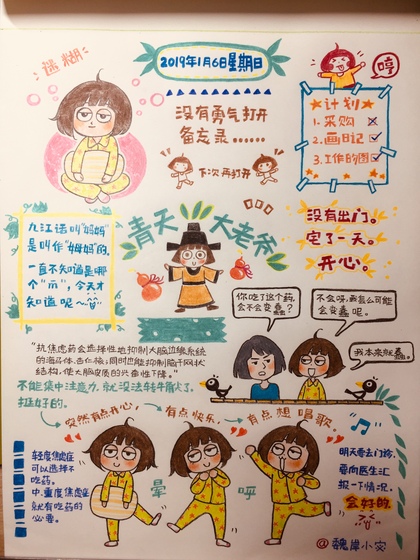 2019年1月6日星期日
迷糊
哼
没有勇气打开
备忘录……
下次再打开
计划
1.采购
2.画日记
3.工作的图
九江话叫“妈妈”
是叫作“姆妈”的.
一直不知道是哪
个“m”,今天才
知道呢～
青天大老爷
没有出门。
宅了一天。
开心。
你吃了这个药,
会不会变蠢?
不会呀,而且怎么可能
会变蠢呢。
我本来就蠢。
“抗焦虑药会选择性地抑制大脑边缘系统
的海马体.杏仁核,同时也能抑制脑干网状
结构,使大脑皮质的兴奋性下降。”
不能集中注意力.就没法钻牛角尖了.
挺好的.
突然有点开心,
有点快乐,
有点想唱歌,
轻度焦虑
可以选择不
吃药。
中.重度焦虑症
就有吃药的
必要。
晕
呼
明天要去门诊.
要向医生汇
报一下情况.
会好的.
@魏岸小安